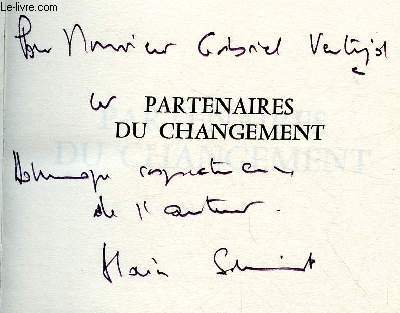 Le-livre.com
Pour Monsieur Gabriel
ces PARTENAIRES
DU CHANGEMENT
Hommage respectueux
de l'auteur.
Alain Schmidt